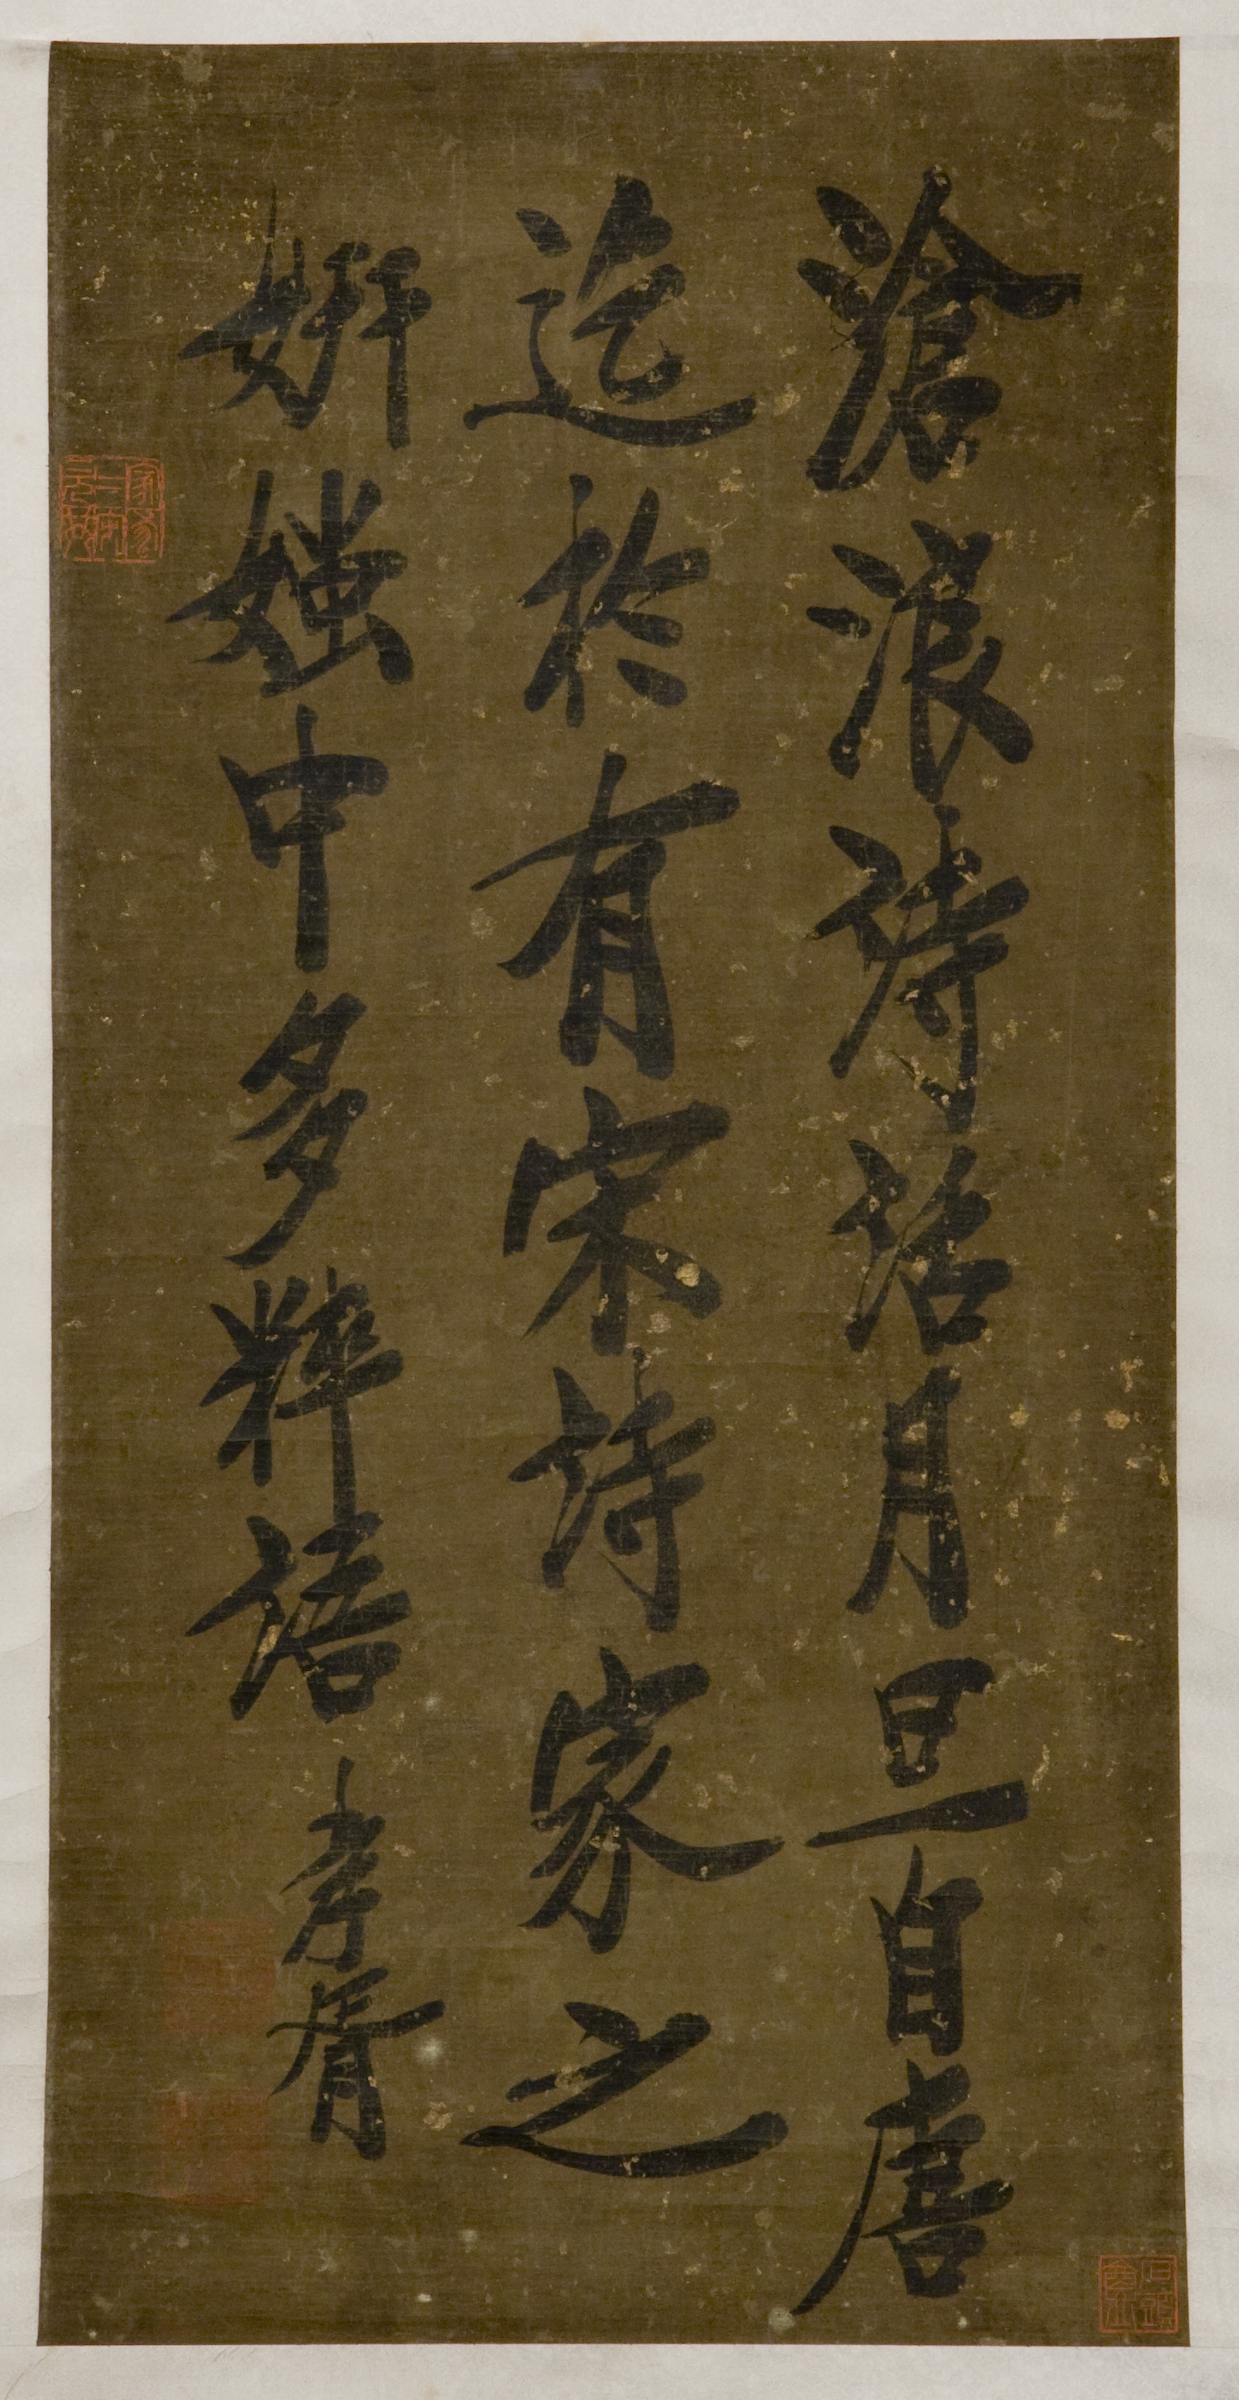 滄浪詩話月旦自唐
迄於有宋詩家之
妍媸中多粹語
孝胥